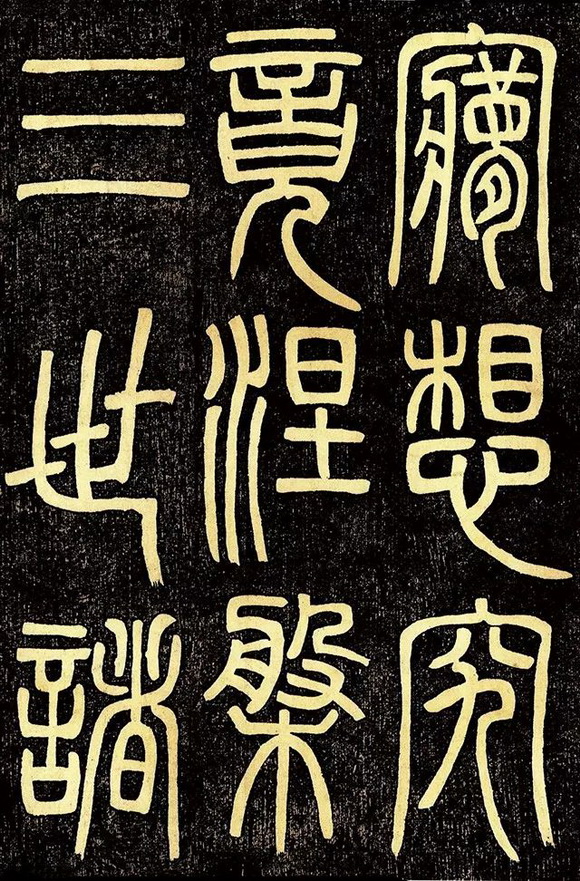 夢想究
竟涅槃
三世諸